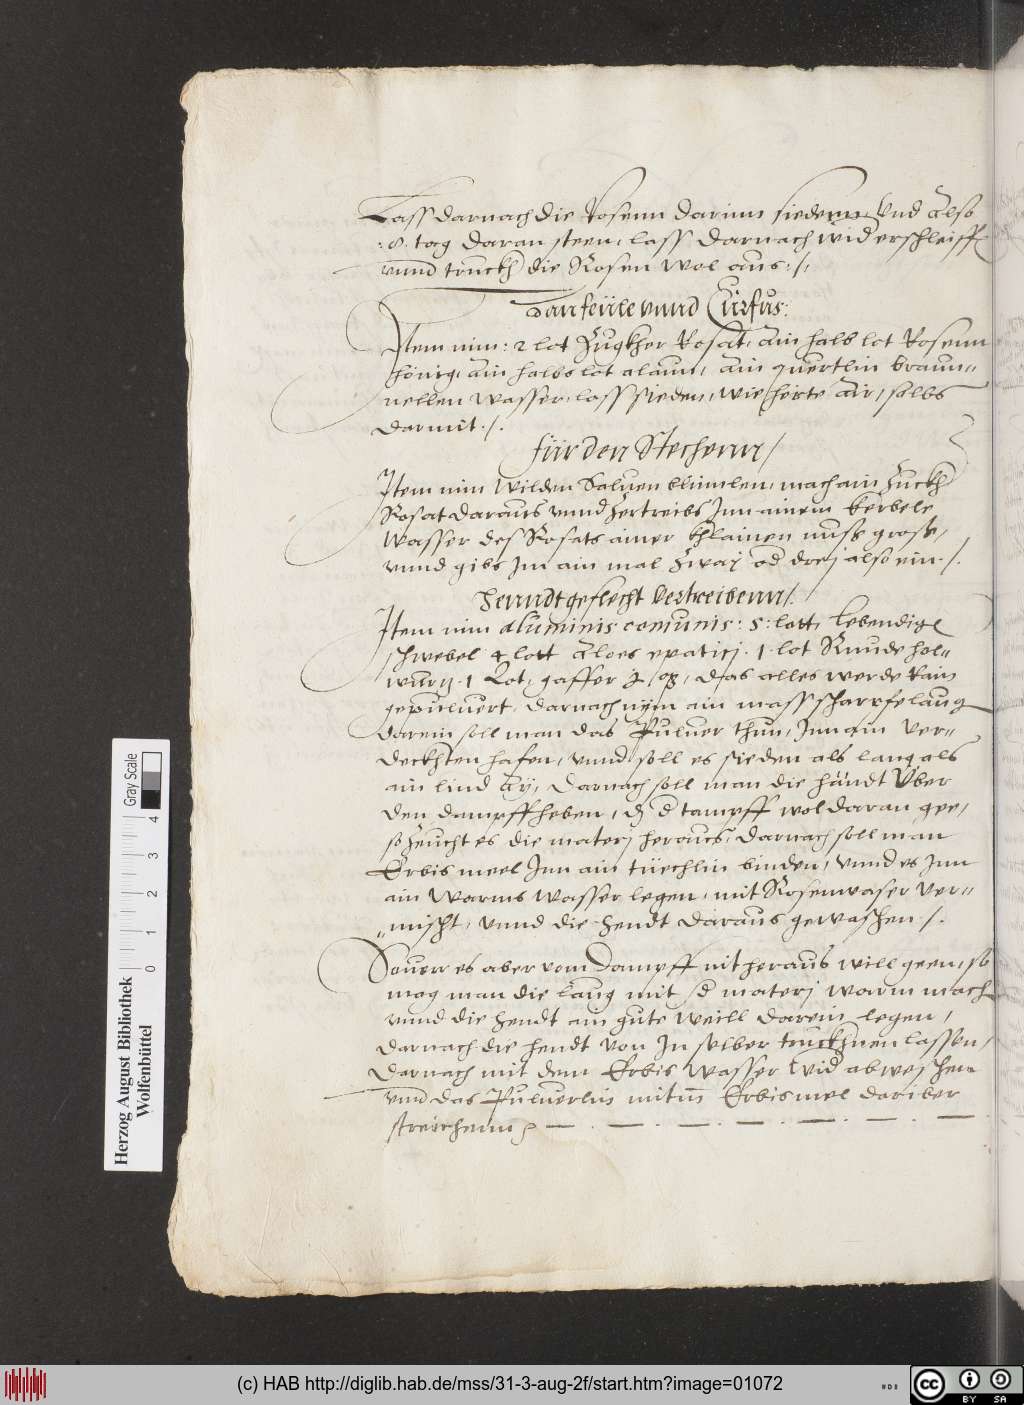 Lass darnach die Rosenn darinn siedenn, Und Also
.8. tag daran steen, lass darnach wid erschleiff
vnnd truckh die Rosen wol aus:/:
Zanfeüle vnnd
Item nim: 2 lot Zugkher Rosat, ain halb lot Rosenn
hönig, ain halbs lot alaun, ain quertlin braun=
nellen wasser, lass sieden, wie herte Air, salbs
darmit./.
für den Stechenn/
Item nim wilden Saluen blümlen, mach ain Zuckh
Rosat daraus vnnd Zertreibs Inn ainem kerbele
wasser des Rosats ainer khlainen nuss gross,
vnnd gibs Im ain mal Zway od drej also ein./.
henndt geflecht Vertreibenn/.
Item nim aluminis comunis: 5: lott, Lebendigē
schwebel 4 lott Aloes epaticj. 1. lot Runde hol=
wurtz. 1 Lot, gaffer das alles werde kain
gepuluert, darnach nym ain mass scharrfe laug
darein soll man das Puluer thun, Inn ain ver=
deckhten hafen, vnnd soll es sieden als lang als
ain lind Ay, Darnach soll man die händt Über
den dampff heben, dz d tampff wol daran gee,
so Zeucht es die matterj heraus, darnach soll man
Erbis meel Inn ain tüechlin binden, vnnd es Inn
ain warms wasser legen, mit Rosenwaser ver=
=mischt, vnnd die hendt daraus gewaschen./.
Souerr es aber vom Dampff nit heraus will geen, so
mag man die laug mit d materj warm mach
vnnd die hendt ain gute weill darein legen,
darnach die hendt von In selber truckhnen lassen,
Darnach mit dem Erbis wasser wid abweschen
vnnd das Puluerlin mitm Erbismel dariber
streichenn
Herzog August Bibliothek
Wolfenbüttel
0 1 2 3 4
Gray Scale
(c) HAB http://diglib.hab.de/mss/31-3-aug-2f/start.htm?image=01072
cc BY SA